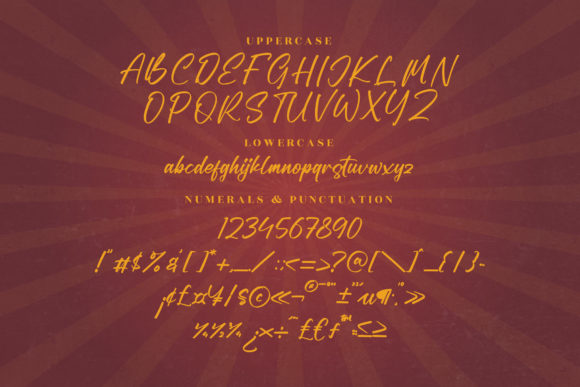 UPPERCASE
ABCDEFGHIJKLMN
OPQRSTUVWXYZ
LOWERCASE
abcdefghijklmnopqrstuvwxyz
NUMERALS & PUNCTUATION
1234567890
!"#$%&'[]*+,_./:;<=>?@[\]^_{|}-
¡¢£¤¥¦§©«¬®¯°±²³´µ¶·¸¹º»
¼½¾¿×÷